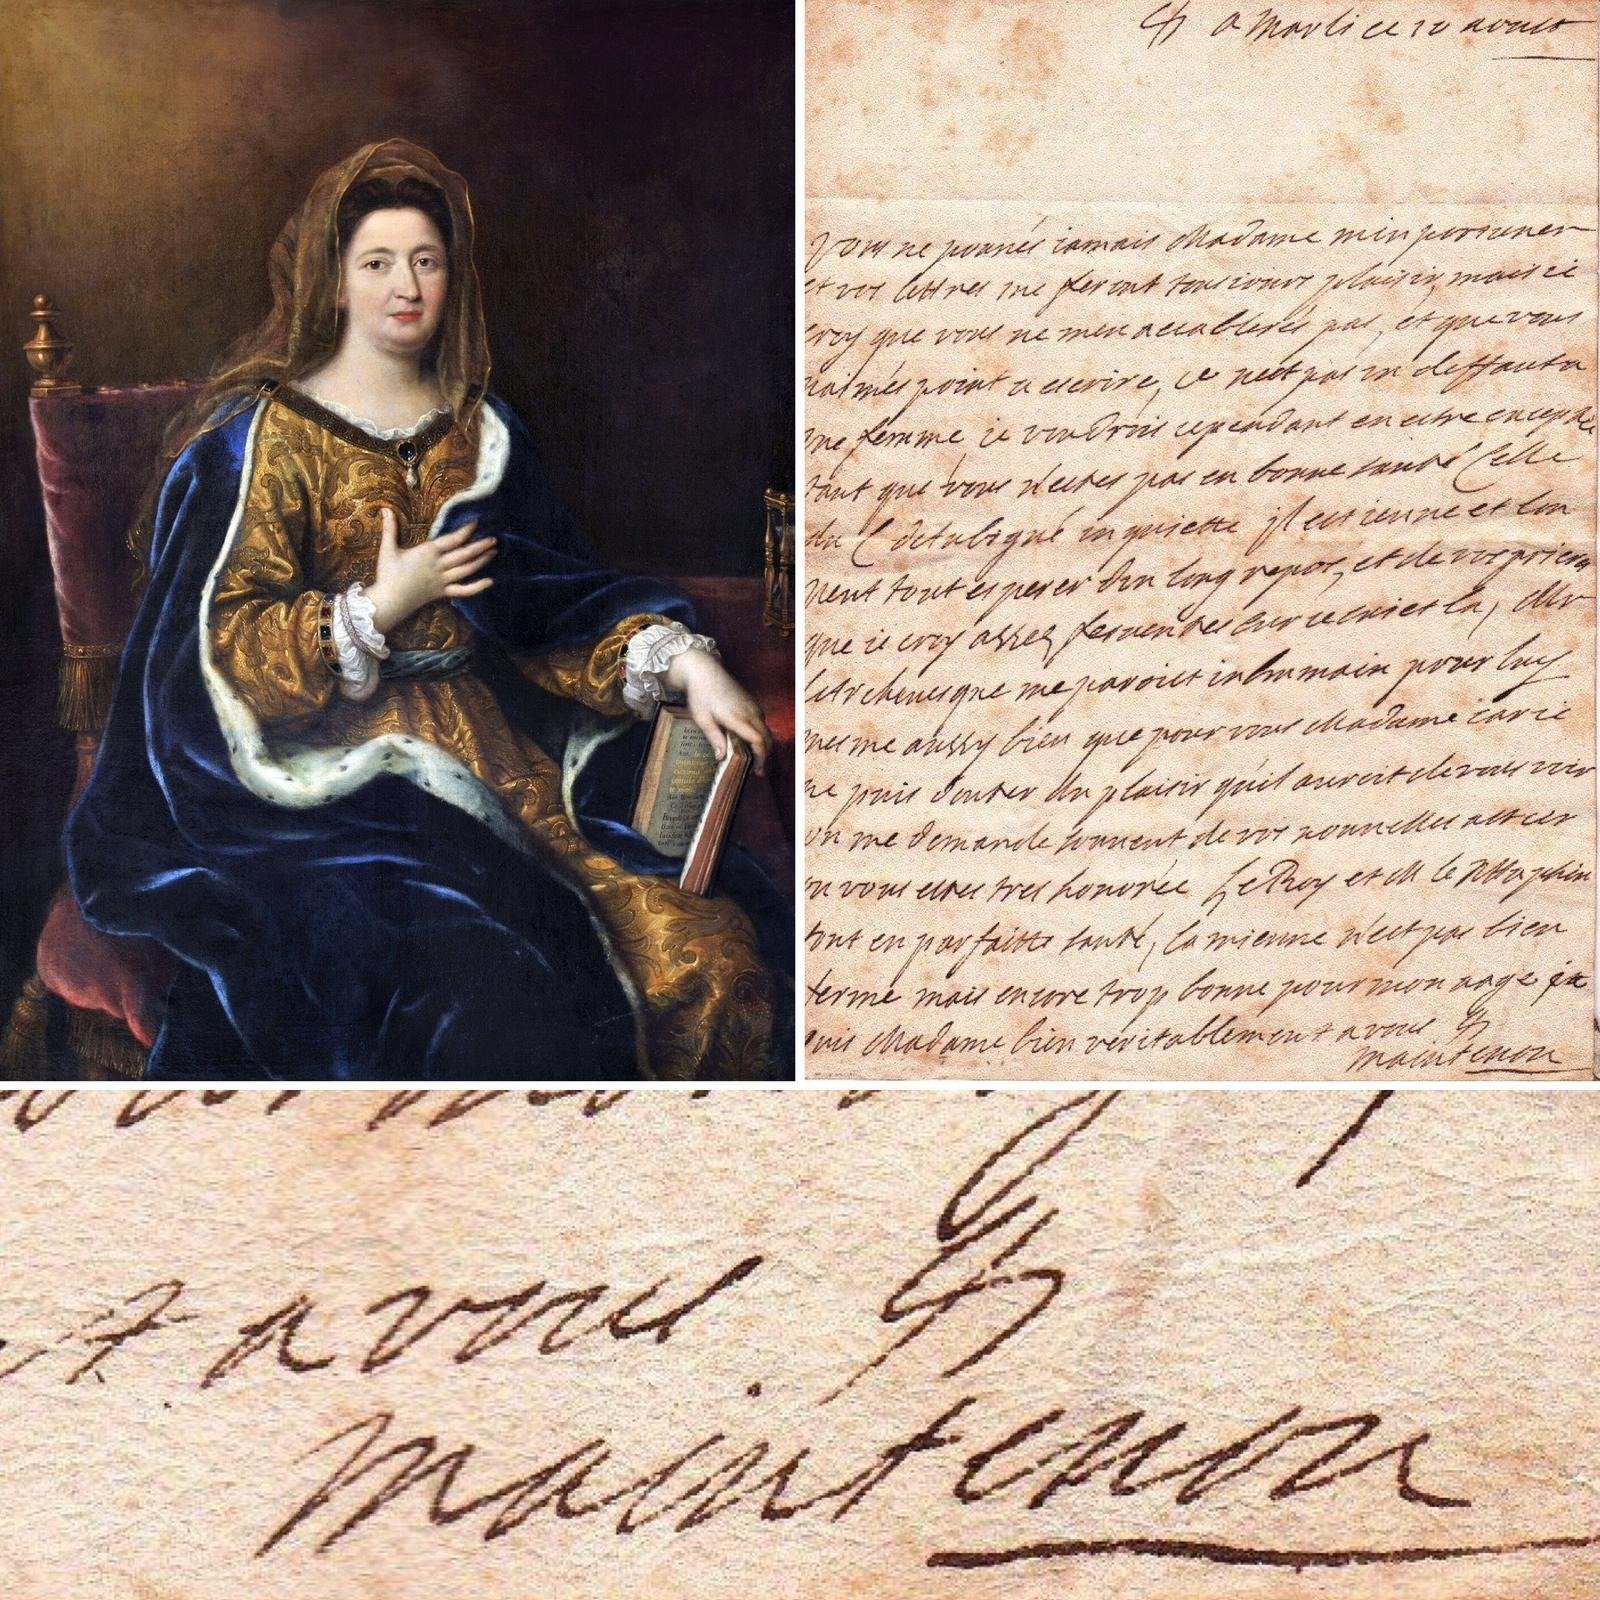 a Marli ce 10 aoust
Vous ne pouvés iamais Madame minportuner
et vos lettres me feront tousiours plaisir, mais ie
croy que vous ne men accablerés pas, et que vous
naimés point a escrire, ce nest pas un deffaut a
une femme ie voudrois cependant en estre exceptée
tant que vous n'estes pas en bonne santé Celle
du C daubigné inquiette il est ieune et lon
peut tout esperer dun long repos, et de vos prieres
que ie croy assés ferventes sur ce suiet la, Mr
larchevesque me paroist inhumain pour luy
mesme aussy bien que pour vous Madame car ie
ne puis douter du plaisir quil auroit de vous voir
on me demande souvent de vos nouvelles
vous estes tres honorée Le Roy et M le Dauphin
sont en parfaitte santé, la mienne n'est pas bien
ferme mais encore trop bonne pour mon aage je
suis Madame bien veritablement a vous
Maintenon
a vous
Maintenon